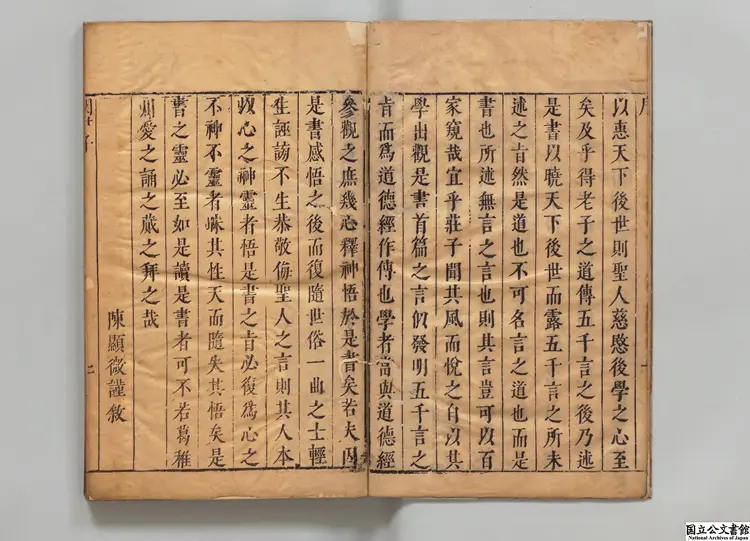 以惠天下後世則聖人慈愍後學之心至
矣及乎得老子之道傳五千言之後乃述
是書以曉天下後世而露五千言之所未
述之旨然是道也不可名言之道也而是
書也所述無言之言也則其言豈可以百
家窺哉宜乎莊子聞其風而悅之自以其
學出觀是書首篇之言似發明五千言之
旨而爲道德經作傳也學者當與道德經
參觀之庶幾心釋神悟於是書矣若夫因
是書感悟之後而復隨世俗一曲之士輕
生誣謗不生恭敬侮聖人之言則其人本
以心之神靈者悟是書之旨必復爲心之
不神不靈者昧其性天而隨失其悟矣是
書之靈必至如是讀是書者可不若葛稚
川愛之誦之藏之拜之哉
陳顯微謹敘
二
国立公文書館
National Archives of Japan